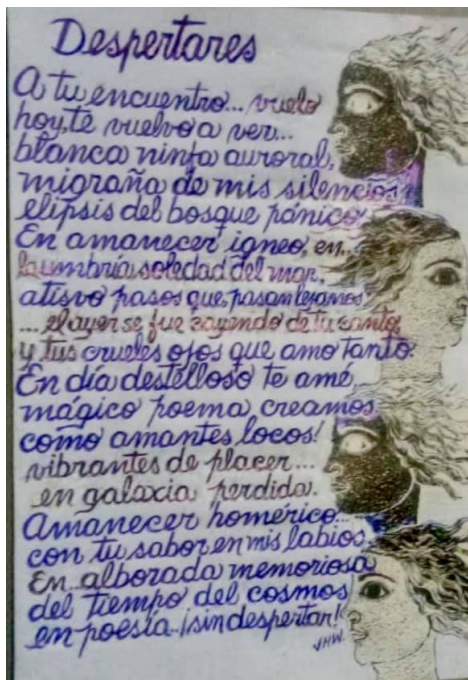 Despertares
A tu encuentro... vuelo
hoy, te vuelvo a ver...
blanca ninfa auroral,
migraña de mis silencios
elipsis del bosque pánico.
En amanecer ígneo, en...
la umbría soledad del mar,
atisvo pasos que pasan lejanos
... el ayer se fue de tu
y tus crueles ojos que amo tanto.
En día destelloso te amé,
mágico poema, creamos
como amantes locos!
vibrantes de placer...
en galaxia perdida.
Amanecer homérico...
con tu sabor en mis labios.
En alborada memoriosa
del tiempo del cosmos
en poesía...¡sin despertar!
JHW